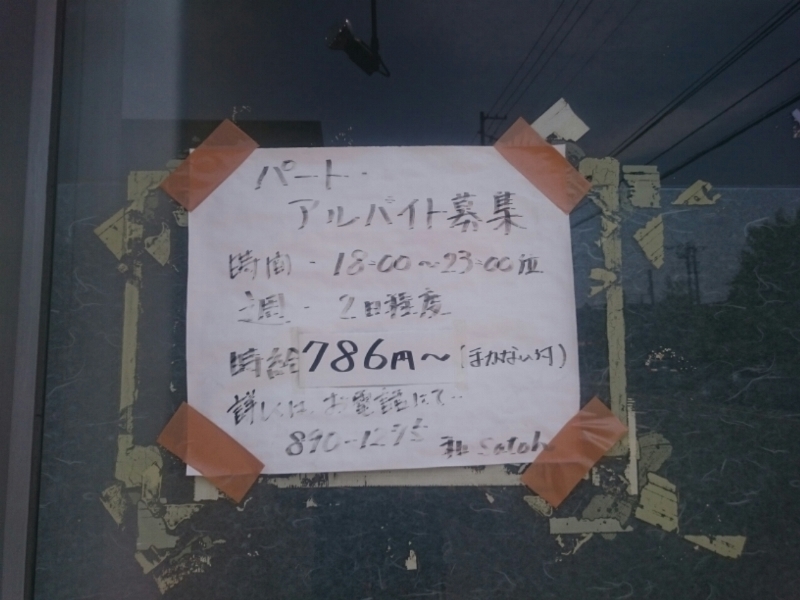 パート・
アルバイト募集
時間・18:00〜23:00
週・2日程度
時給786円〜(まかない付)
詳しくはお電話にて・・
890-1295
Satoh